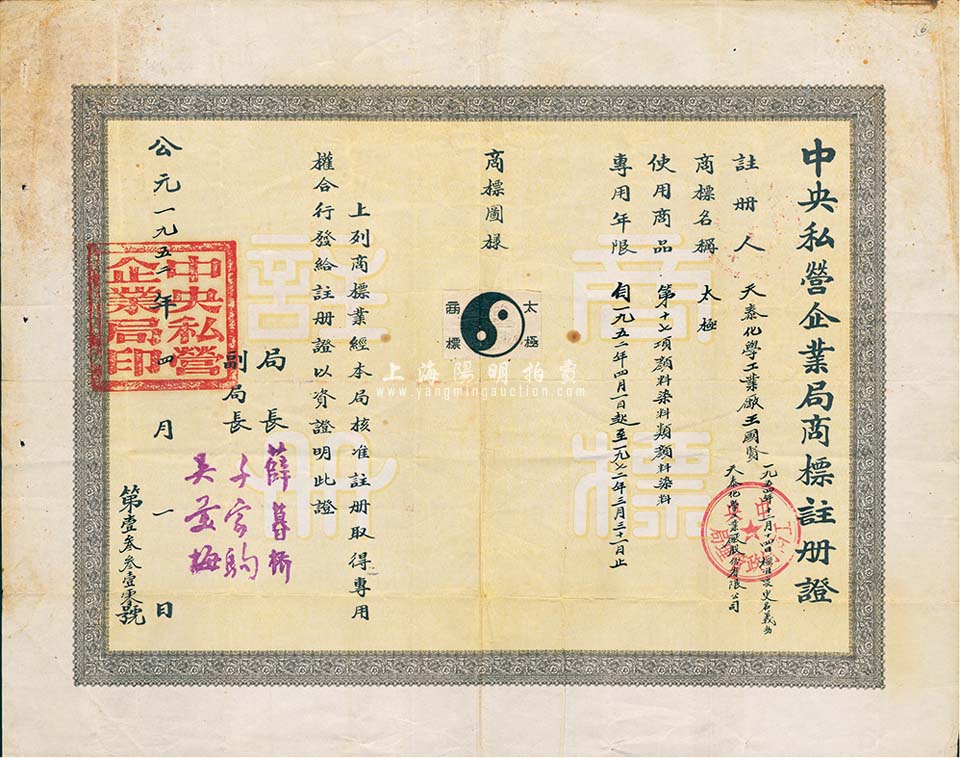 中央私營企業局商標註册證
註册人 天泰化學工業廠王國賢
一九五四年十二月十四日核准變更名義為
天泰化學工業廠股份有限公司
商標名稱 太極
使用商品 第十七項顏料染料類顏料染料
專用年限 自一九五二年四月一日起至一九七二年三月三十一日止
商標圖樣
太極
商標
上列商標業經本局核准註册取得專用
權合行發給註册證以資證明此證
局長 薛暮橋
副局長 千家駒
吳羹梅
公元一九五二年四月一日
中央私營企業局印
第壹叁叁壹零號
商標
註册
上海陽明拍賣
www.yangmingauction.com
6